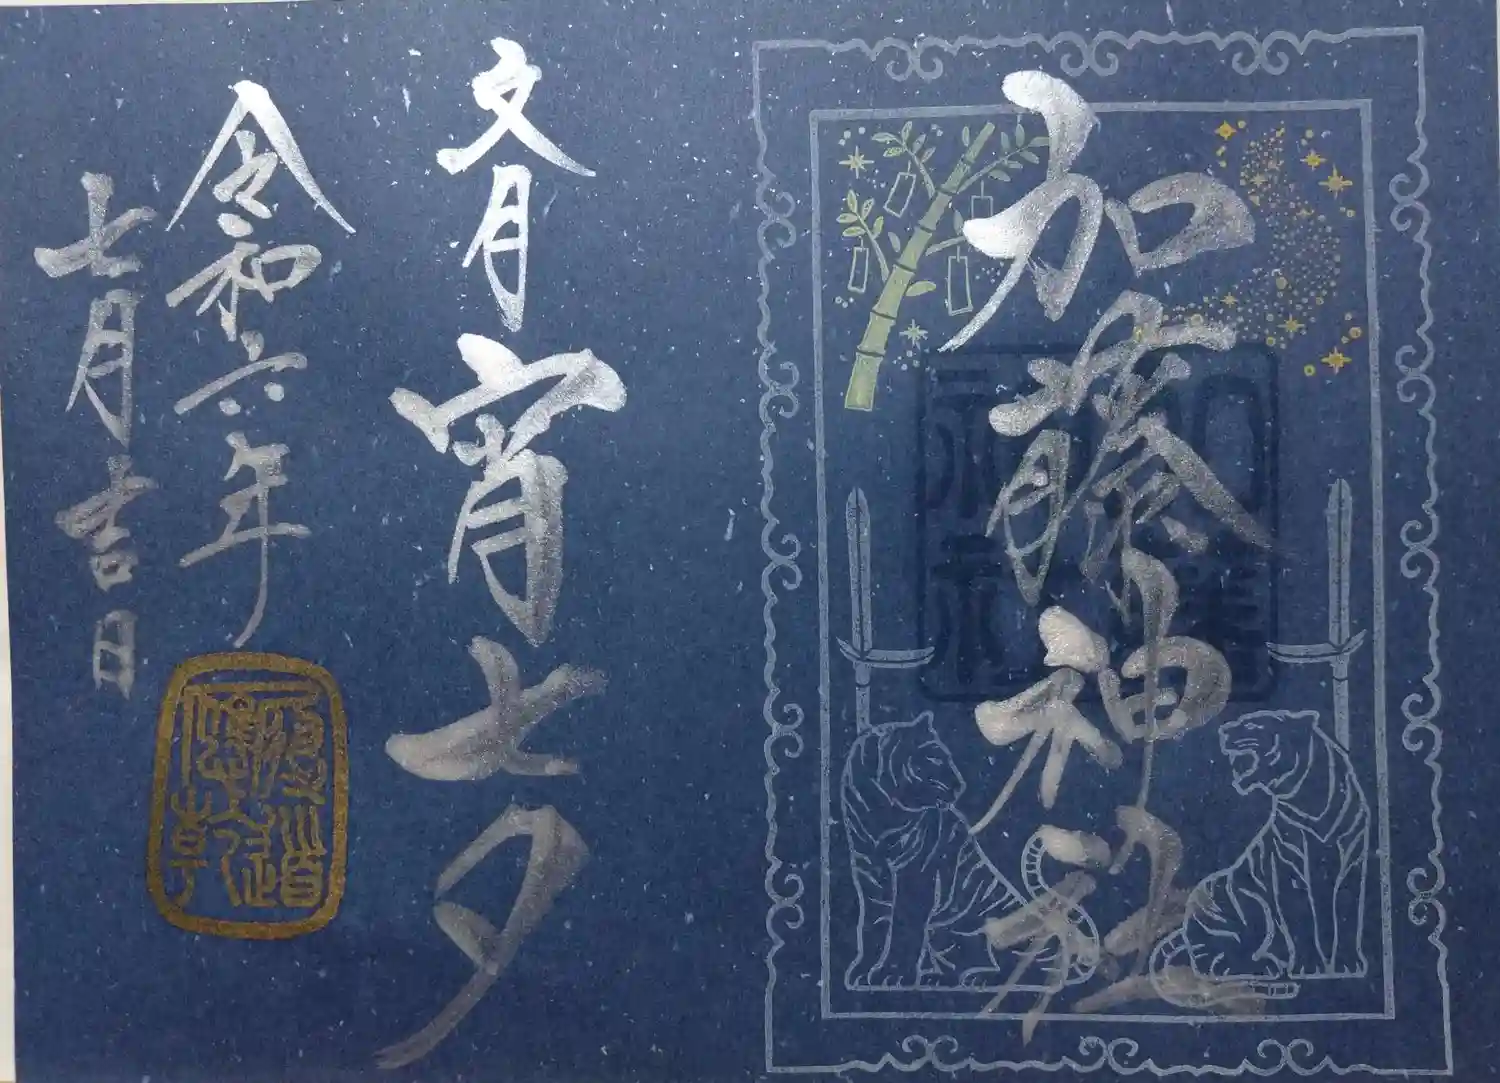 加藤神社
文月宵七夕
令和六年
七月吉日